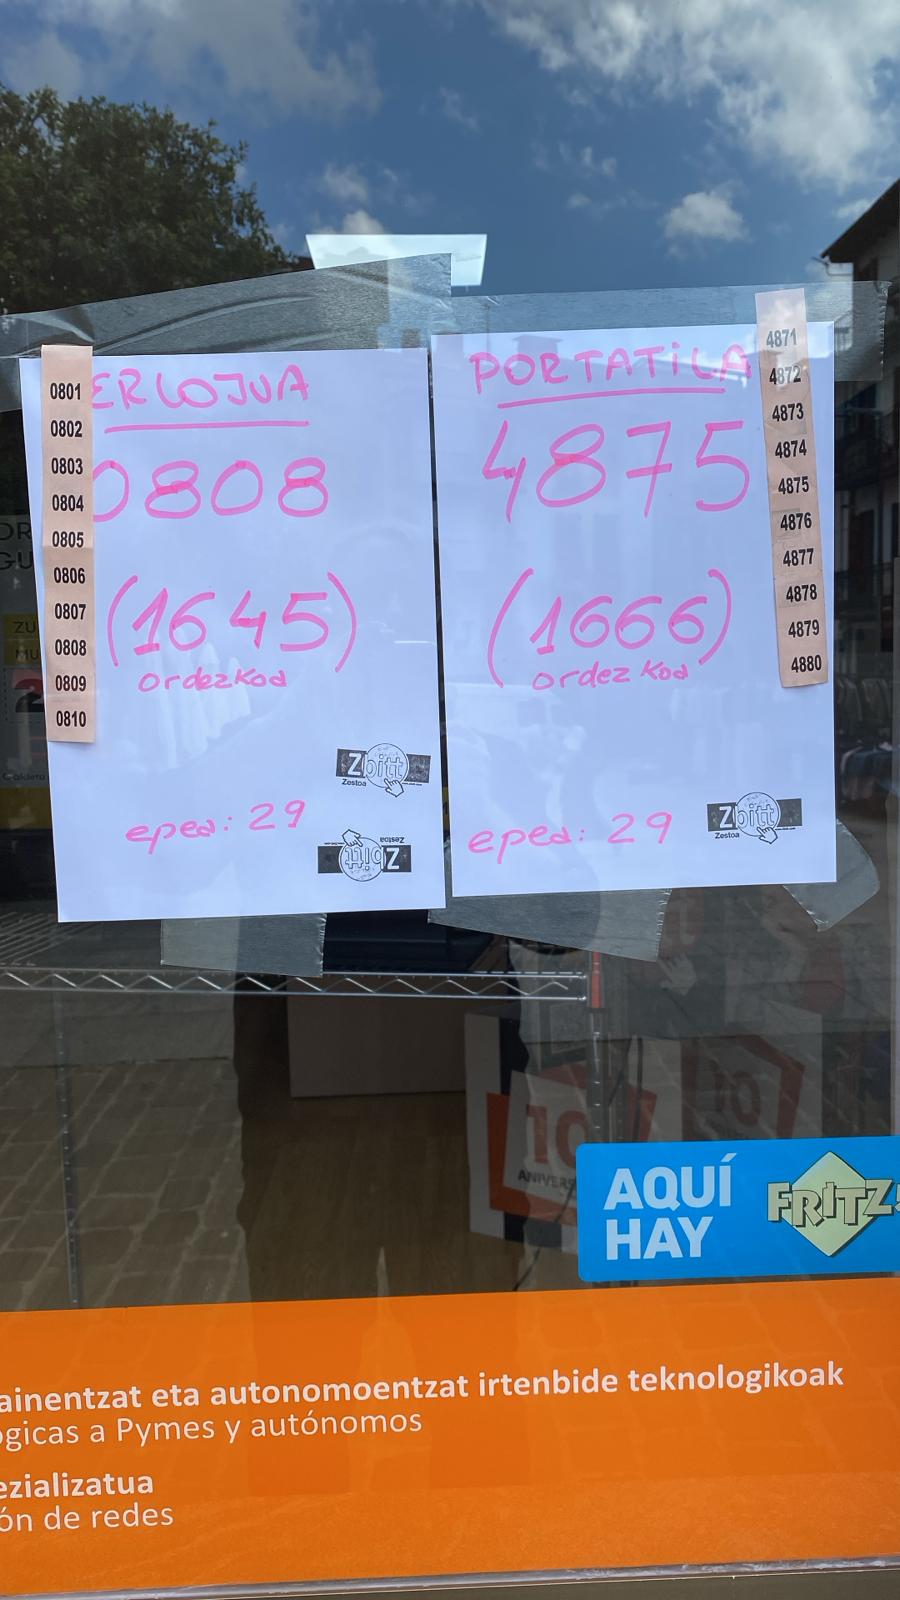 ERLOJUA
0808
(1645)
ordezkoa
epea: 29
Zbitt
Zestoa
Zbitt
Zestoa
0801
0802
0803
0804
0805
0806
0807
0808
0809
0810
PORTATiLA
4875
(1666)
ordezkoa
epea: 29
Zbitt
Zestoa
4871
4872
4873
4874
4875
4876
4877
4878
4879
4880
10
AQUÍ
HAY
FRITZ!
ainentzat eta autonomoentzat irtenbide teknologikoak
ógicas a Pymes y autónomos
ezializatua
ón de redes